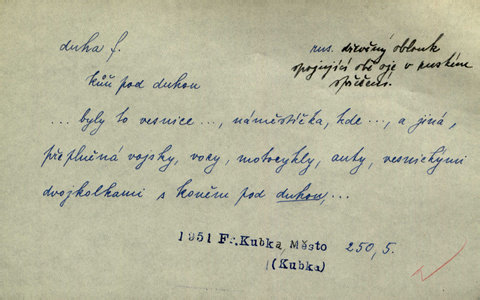 duha f.
rus. dřevěný oblouk
spojující obě oje v ruském
spřežení.
kůň pod duhou
... byly to vesnice ..., náměstíčka, kde ..., a jiná,
přeplněná vojsky, vozy, motocykly, auty, vesnickými
dvojkolkami s koněm pod duhou, ...
1951 Fr. Kubka, Město 250, 5.
(Kubka)